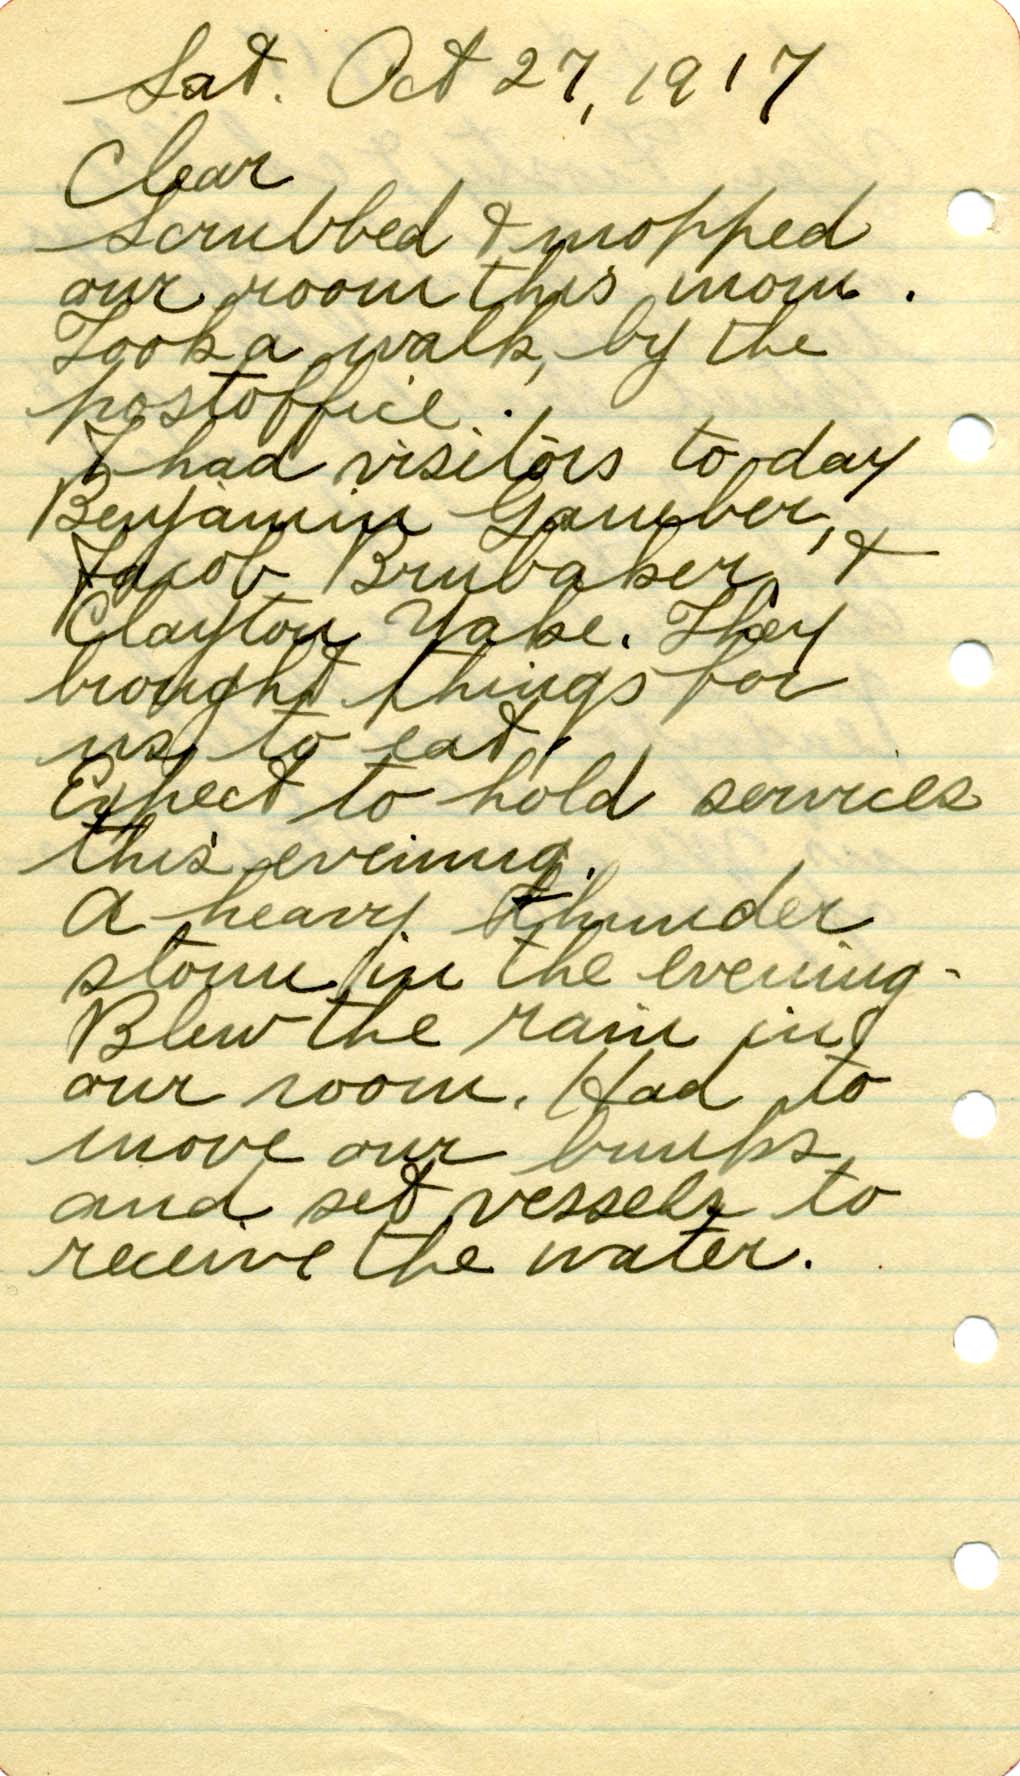 Sat. Oct 27, 1917
Clear
Scrubbed & mopped
our room this morn.
Took a walk, by the
postoffice.
I had visitors to day
Benjamin Gamber, &
Jacob Brubaker, &
Clayton Yake. They
brought things for
us to eat.
Expect to hold services
this evening.
A heavy thunder
storm in the evening.
Blew the rain in
our room. Had to
move our bunks
and set vessels to
receive the water.